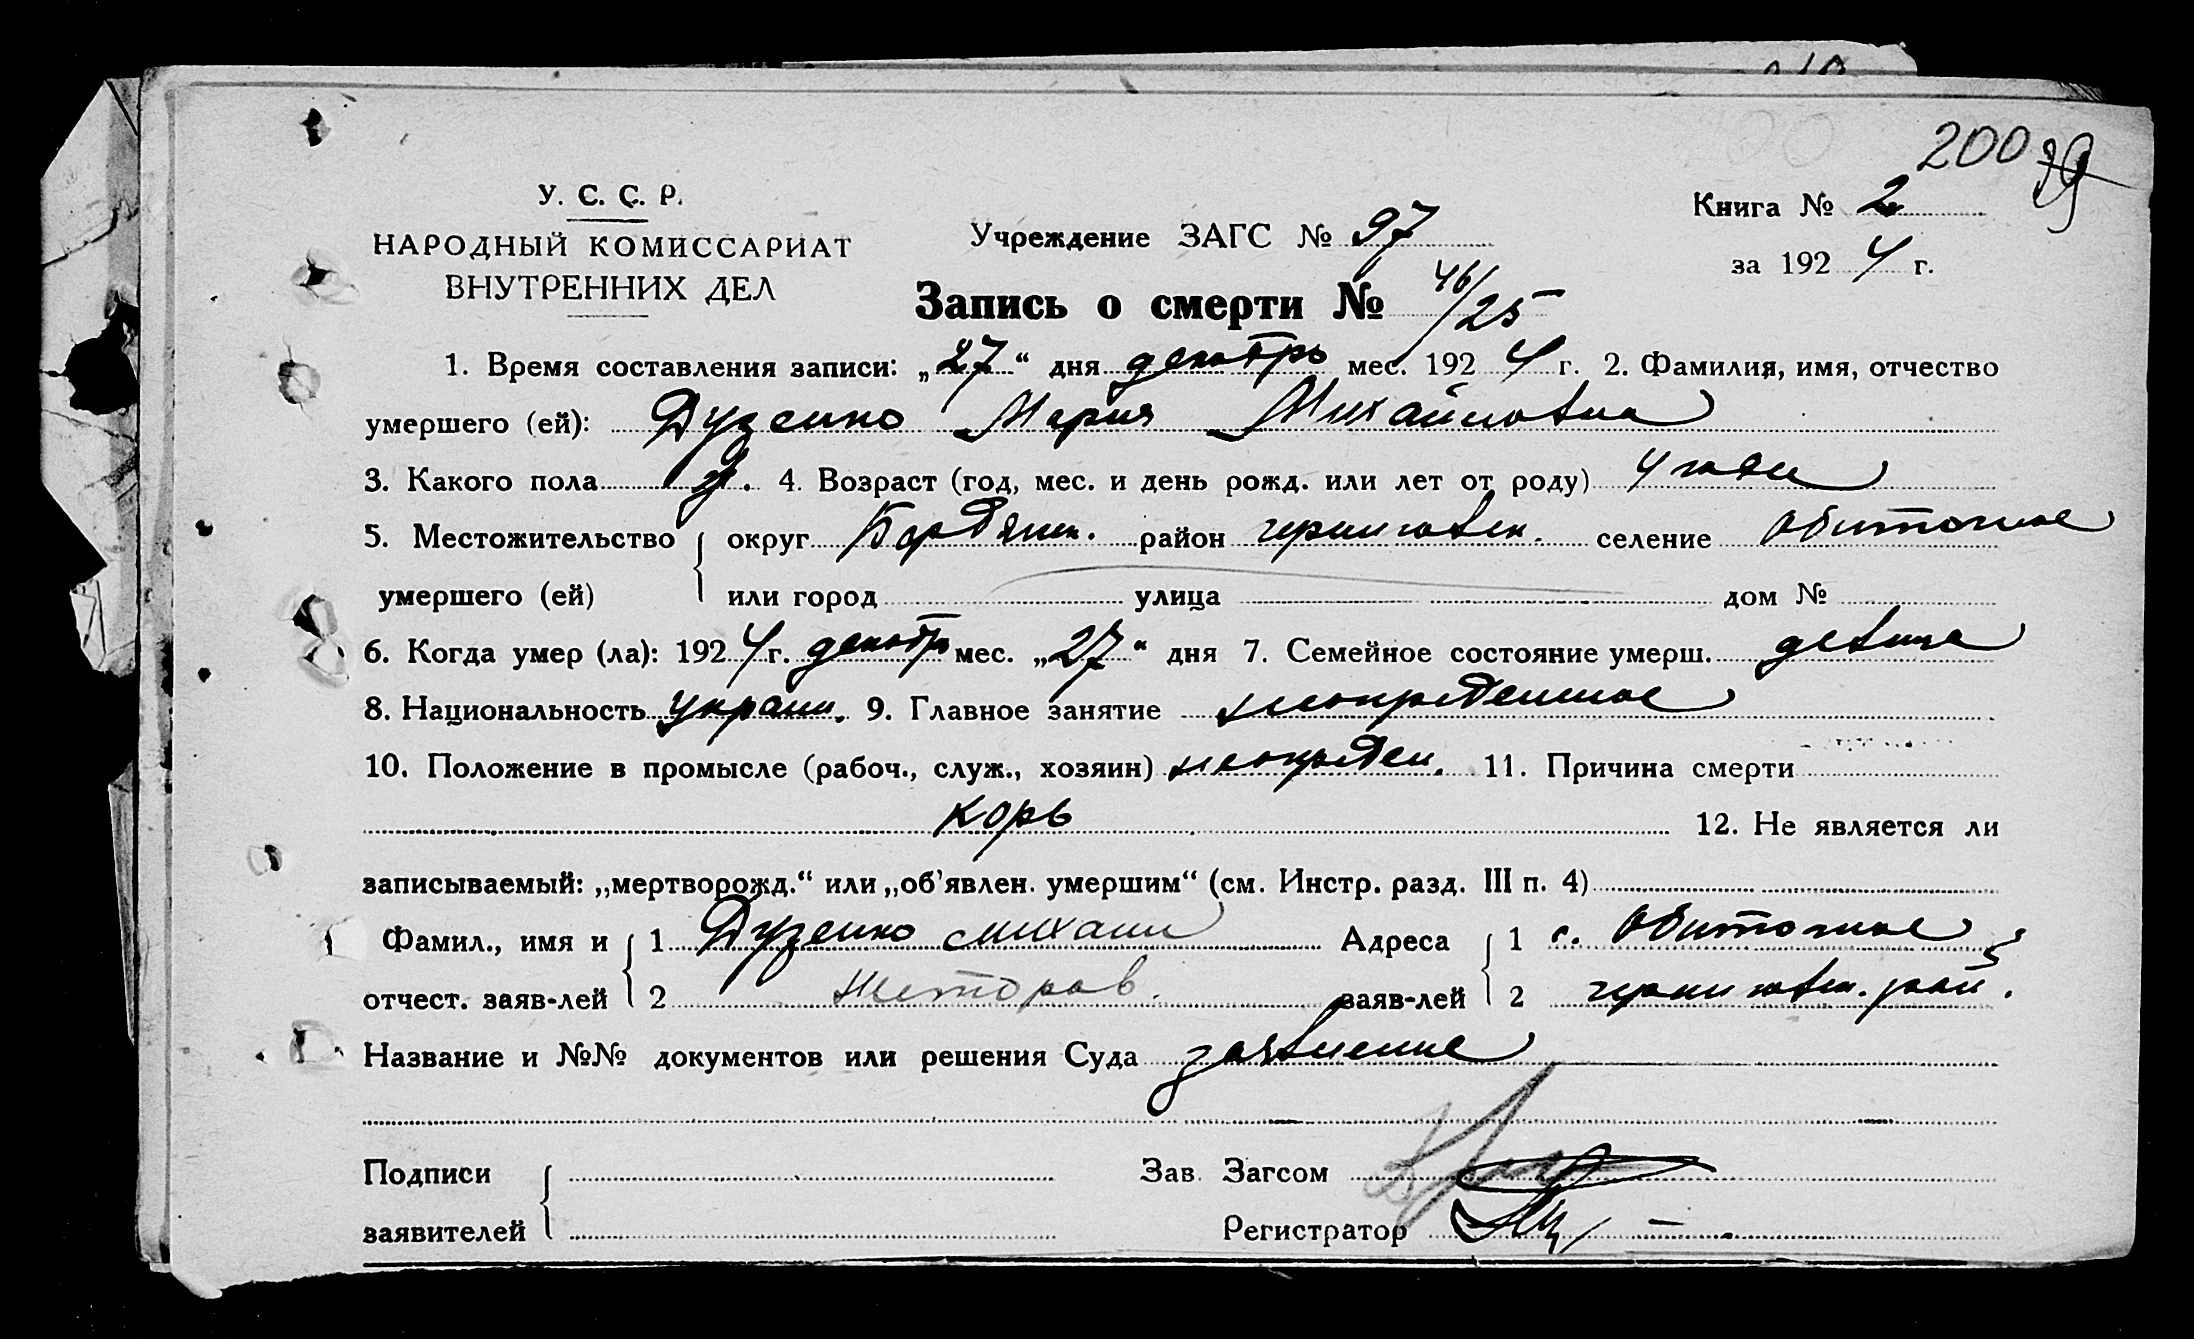 200 39
У. С. С. Р.
НАРОДНЫЙ КОМИССАРИАТ
ВНУТРЕННИХ ДЕЛ
Учреждение ЗАГС № 97
Книга № 2
за 1924 г.
Запись о смерти № 46/25
1. Время составления записи: „27“ дня декабрь мес. 1924 г. 2. Фамилия, имя, отчество
умершего (ей): Дузенко Мария Михайловна
3. Какого пола 4. Возраст (год, мес. и день рожд. или лет от роду) 4 года
5. Местожительство округ Бердянск. район черниговск. селение Обиточное
умершего (ей) или город улица дом №
6. Когда умер (ла): 1924 г. декабрь мес. „27“ дня 7. Семейное состояние умерш. девица
8. Национальность украин. 9. Главное занятие неопределенное
10. Положение в промысле (рабоч., служ., хозяин) неопредел. 11. Причина смерти
корь 12. Не является ли
записываемый: „мертворожд.“ или „об’явлен. умершим“ (см. Инстр. разд. III п. 4)
Фамил., имя и 1 Дузенко Михаил Адреса 1 с. Обиточное
отчест. заяв-лей 2 заяв-лей 2 черниговск. рай.
Название и №№ документов или решения Суда заявление
Подписи Зав. Загсом
заявителей Регистратор